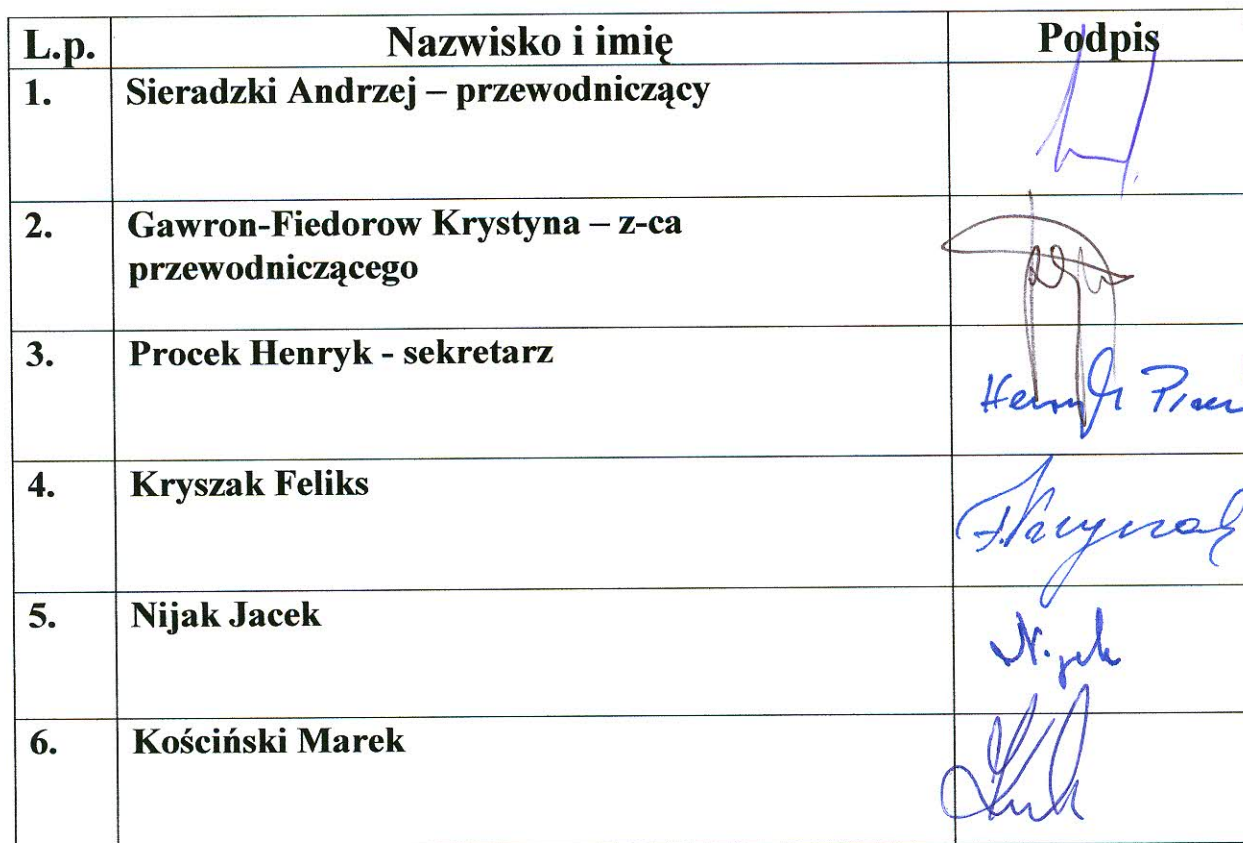 L.p. Nazwisko i imię Podpis
1. Sieradzki Andrzej – przewodniczący
2. Gawron-Fiedorow Krystyna – z-ca
przewodniczącego
3. Procek Henryk - sekretarz
4. Kryszak Feliks
F. Kryszak
5. Nijak Jacek
6. Kościński Marek